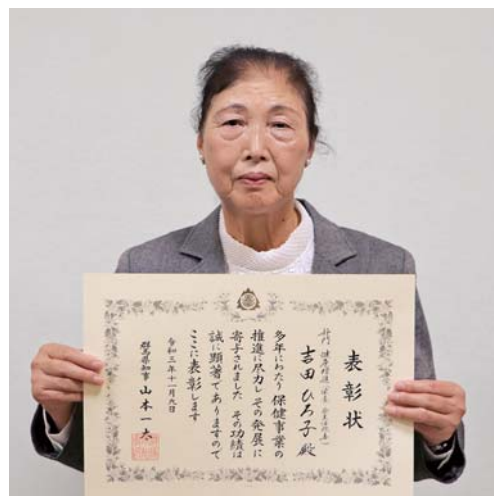 表彰状
吉田 ひろ子 殿
多年にわたり保健事業の
推進に尽力しその発展に
寄与されました その功績は
誠に顕著でありますので
ここに表彰します
令和三年十一月九日
群馬県知事 山本一太